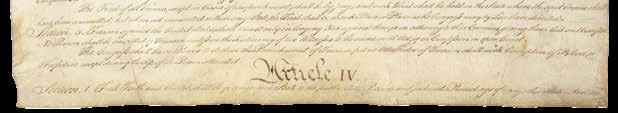 The Trial of all Crimes, except in Cases of Impeachment, shall be by Jury; and such Trial shall be held in the State where the said Crimes shall
have been committed; but when not committed within any State, the Trial shall be at such Place or Places as the Congress may by Law have directed.
Section. 3. Treason against the United States, shall consist only in levying War against them, or in adhering to their Enemies, giving them Aid and Comfort.
No Person shall be convicted of Treason unless on the Testimony of two Witnesses to the same overt Act, or on Confession in open Court.
The Congress shall have Power to declare the Punishment of Treason, but no Attainder of Treason shall work Corruption of Blood, or
Forfeiture except during the Life of the Person attainted.
Article. IV.
Section. 1. Full Faith and Credit shall be given in each State to the public Acts, Records, and judicial Proceedings of every other State.